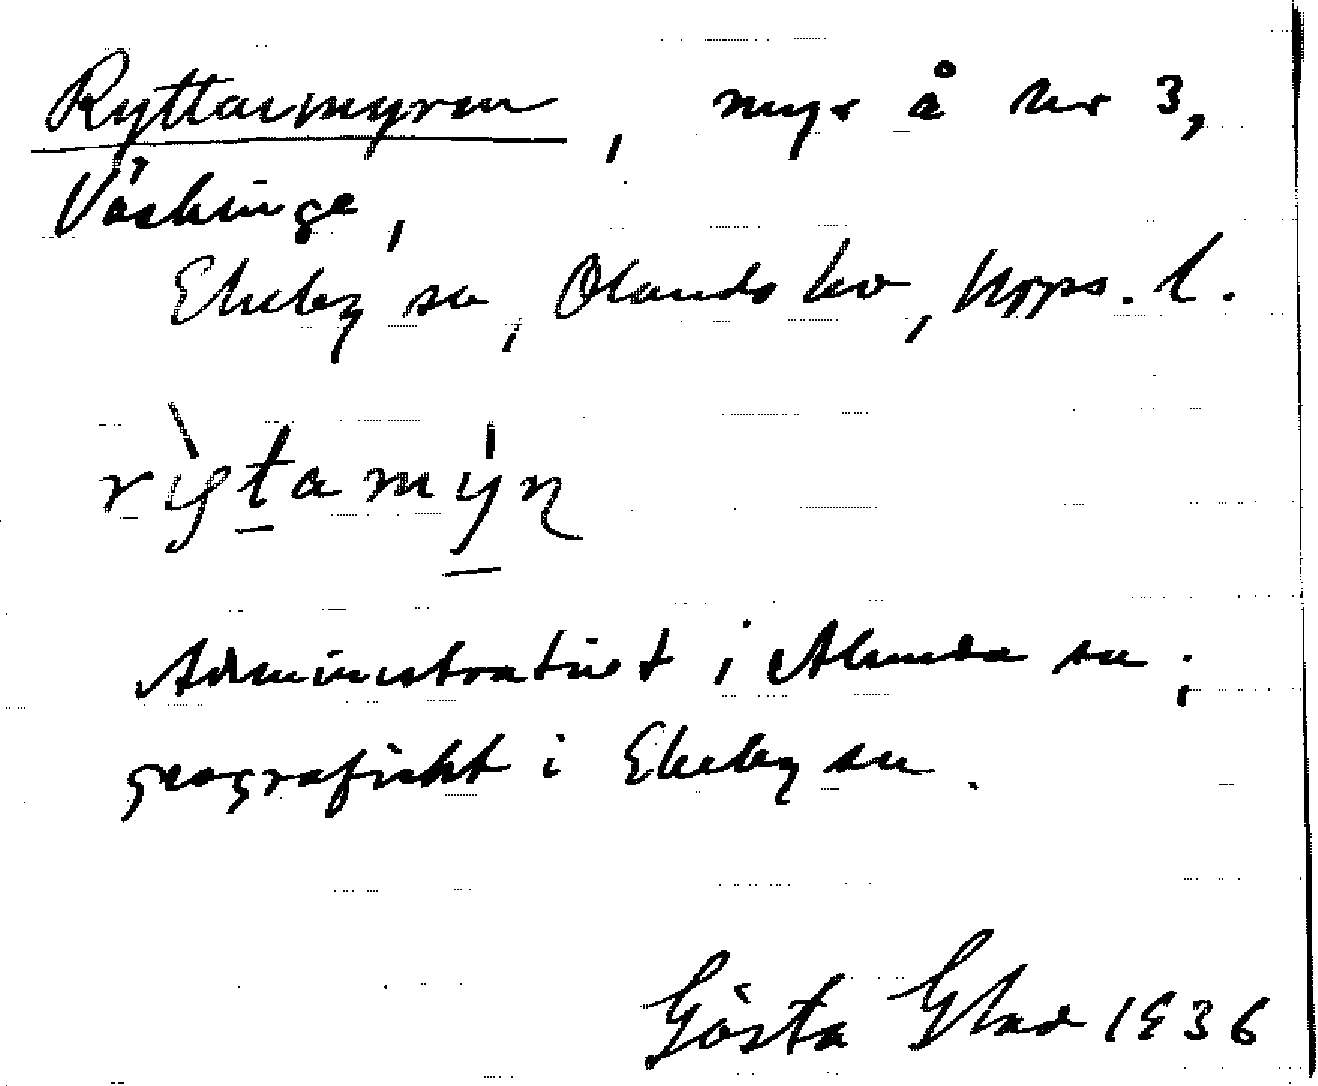 Ryttarmyren, myr å nr 3,
Väskinge,
Ekeby sn, Olands hd, Upps. l.
Administrativt i Alunda sn;
geografiskt i Ekeby sn.
Gösta Glad 1936